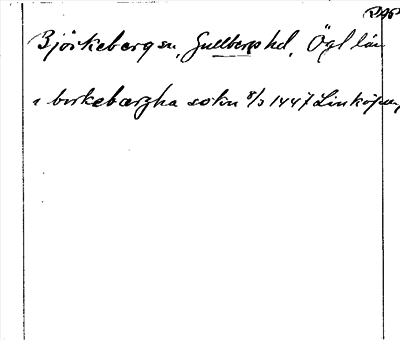 Björkeberg sn, Gullbergs hd, Ögl län
i birkebærgha sokn 8/3 1447 Linköping